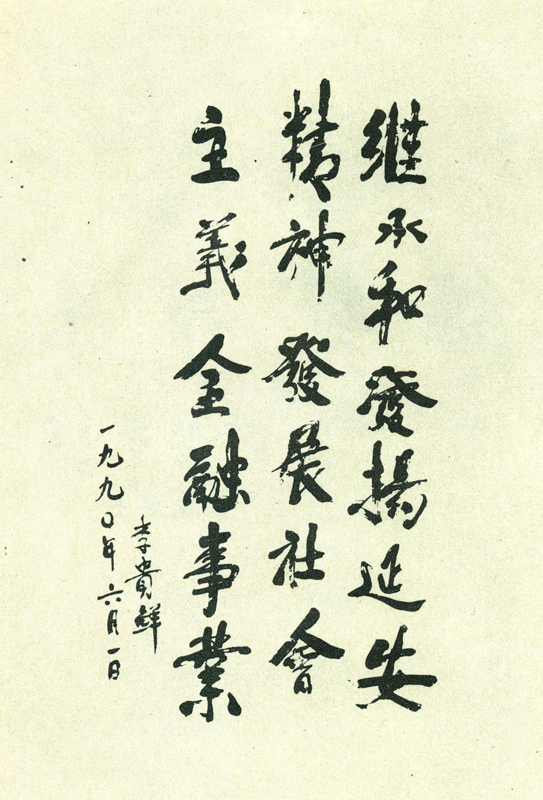 继承和發揚延安
精神發展社會
主義金融事業
李貴鲜
一九九〇年六月一日